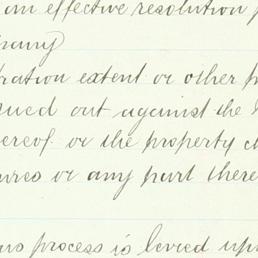 an effective resolution p
pany
tration extent or other p
sued out against the
ereof or the property c
ures or any part there
ss process is levied upo